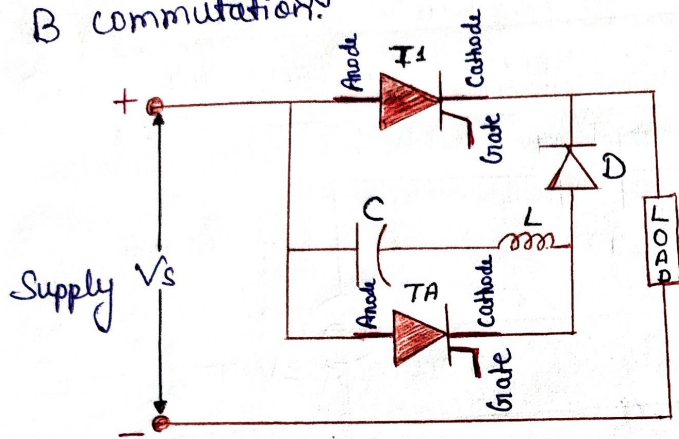 B commutation:
Anode
T1
Cathode
+
Gate
D
C
L
LOAD
Supply Vs
Anode
TA
Cathode
Gate
−